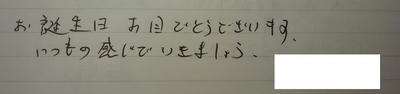 お誕生日 お目でとうございます。
いつもの感じでいきましょう。